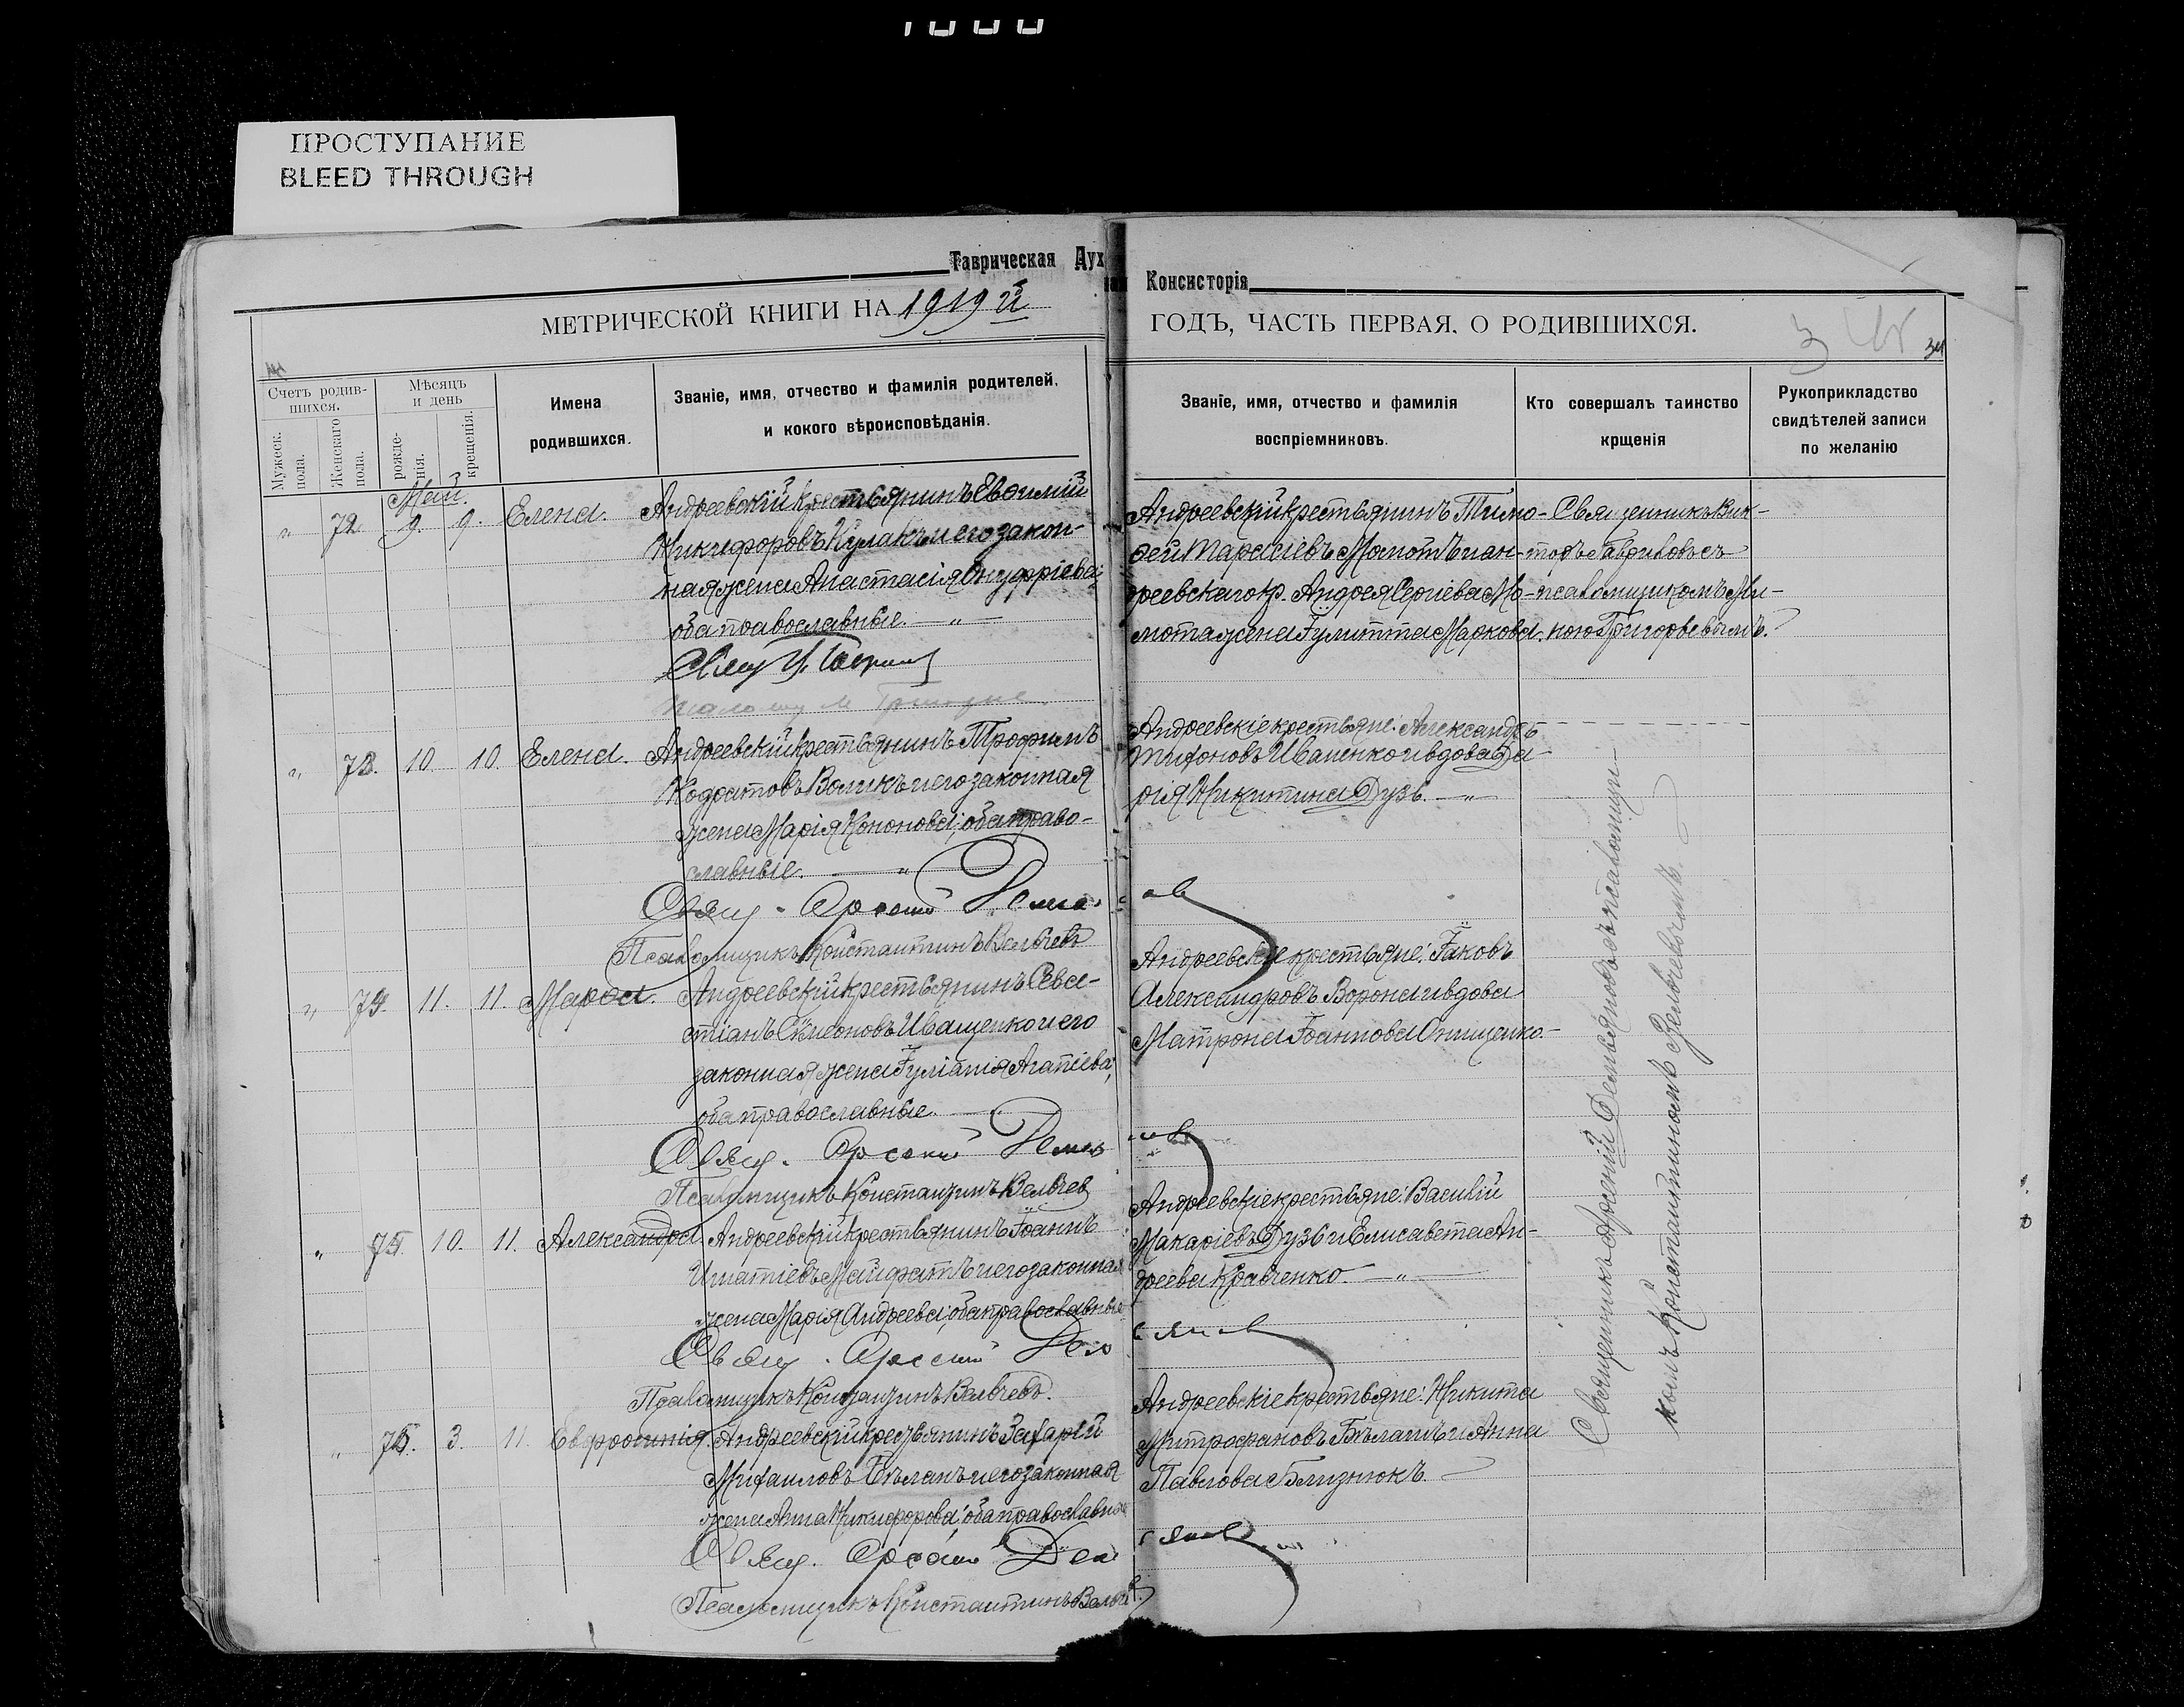 1000
ПРОСТУПАНИЕ
BLEED THROUGH
Таврическая Дух
Консисторія
МЕТРИЧЕСКОЙ КНИГИ НА 1919 й
ГОДЪ, ЧАСТЬ ПЕРВАЯ, О РОДИВШИХСЯ.
Счетъ родив-
шихся.
Мужеск.
пола.
Женскаго
пола.
Мѣсяцъ
и день
рожде-
нія.
крещенія.
Имена
родившихся.
Званіе, имя, отчество и фамилія родителей,
и кокого вѣроисповѣданія.
Званіе, имя, отчество и фамилія
воспріемниковъ.
Кто совершалъ таинство
крщенія
Рукоприкладство
свидѣтелей записи
по желанію
Май.
72. 9. 9. Елена. Андреевскій крестьянинъ Евѳимій
Никифоровъ Кулакъ и его закон-
ная жена Анастасія Онуфріева;
оба православные.
Андреевскій крестьянинъ Тимо-
ѳей Тарасіевъ Мамотъ и Ан-
дреевскаго кр. Андрея Сергіева Ма-
мота жена Іулитта Маркова.
Священникъ Вик-
торъ Гавриловъ съ
псаломщикомъ Ми-
ною Григорьевымъ.
73. 10 10. Елена. Андреевскій крестьянинъ Трофимъ
Кодратовъ Воликъ и его законная
жена Марія Кононова; оба право-
славные.
Свящ. Арсеній
Псаломщикъ Константинъ Вельчевъ
Андреевскіе крестьяне: Александръ
Тихоновъ Иващенко и вдова Да-
рія Никитина Дузь.
74. 11. 11. Марѳа. Андреевскій крестьянинъ Сева-
стіанъ Симеоновъ Иващенко и его
законная жена Іуліанія Агапіева;
оба православные.
Свящ. Арсеній
Псаломщикъ Константинъ Вельчев
Андреевскіе крестьяне: Іаковъ
Александровъ Ворона и вдова
Матрона Іоаннова Онищенко.
75. 10. 11. Александра. Андреевскій крестьянинъ Іоаннъ
Игнатіевъ Майфатъ и его законная
жена Марія Андреева; оба православные
Свящ. Арсеній
Псаломщикъ Константинъ Вельчевъ.
Андреевскіе крестьяне: Василій
Макаріевъ Дузь и Елисавета Ан-
дреева Кравченко.
76. 3. 11. Евфросинія. Андреевскій крестьянинъ Захарій
Михаиловъ Бѣланъ и его законная
жена Анна Никифорова; оба православные
Свящ. Арсеній
Псаломщикъ Константинъ
Андреевскіе крестьяне: Никита
Митрофановъ Бѣланъ и Анна
Павлова Близнюкъ.
Священникъ Арсеній Демьяновъ съ псаломщи-
комъ Константиномъ Вельчевымъ.